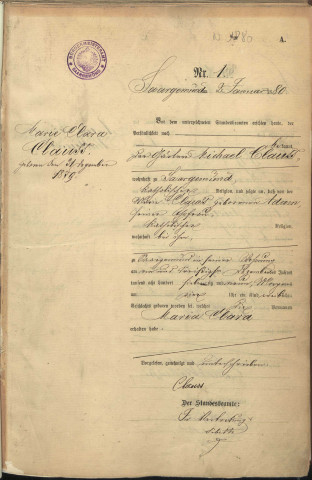 A.
Nr. 1.
Saargemünd, 2 Januar 1880.
Vor dem unterzeichneten Standesbeamten erschien heute, der
Persönlichkeit nach
bekannt,
der Michael Clauss
wohnhaft zu Saargemünd
katholischer Religion, und zeigte an, daß von der
Clauss geborenen Adam
seiner Ehefrau
katholischer Religion,
wohnhaft bei ihm,
zu Saargemünd in seiner Wohnung
am ein und dreißigsten Dezember des Jahres
tausend acht hundert siebenzig und neun Morgens
um vier Uhr ein Kind weiblichen
Geschlechts geboren worden sei, welches die Vornamen
Maria Clara
erhalten habe.
Vorgelesen, genehmigt und unterschrieben
Clauss
Der Standesbeamte:
In Vertretung
Marie Clara
Clauss.
geboren den 31 Dezember
1879.